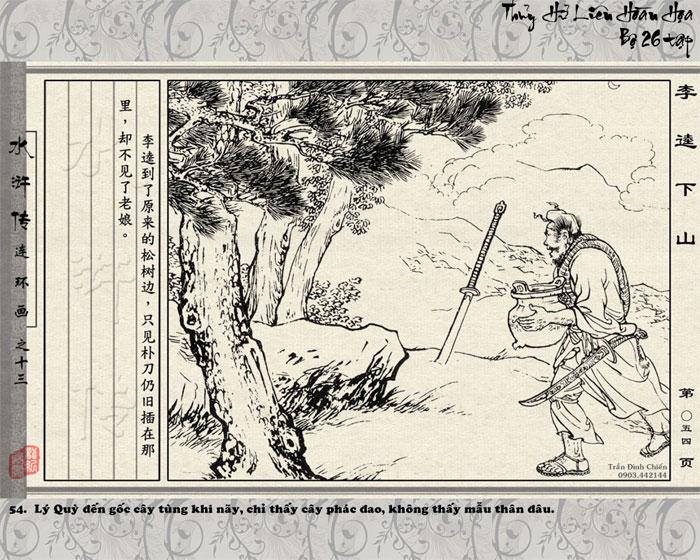 Thủy Hử Liên Hoàn Họa
Bộ 26 tập
李逵下山
第〇五四页
李逵到了原来的松树边，只见朴刀仍旧插在那
里，却不见了老娘。
水浒传
水浒传连环画之十三
Trần Đình Chiến
0903.442144
54. Lý Quỳ đến gốc cây tùng khi nãy, chỉ thấy cây phác dao, không thấy mẫu thân đâu.